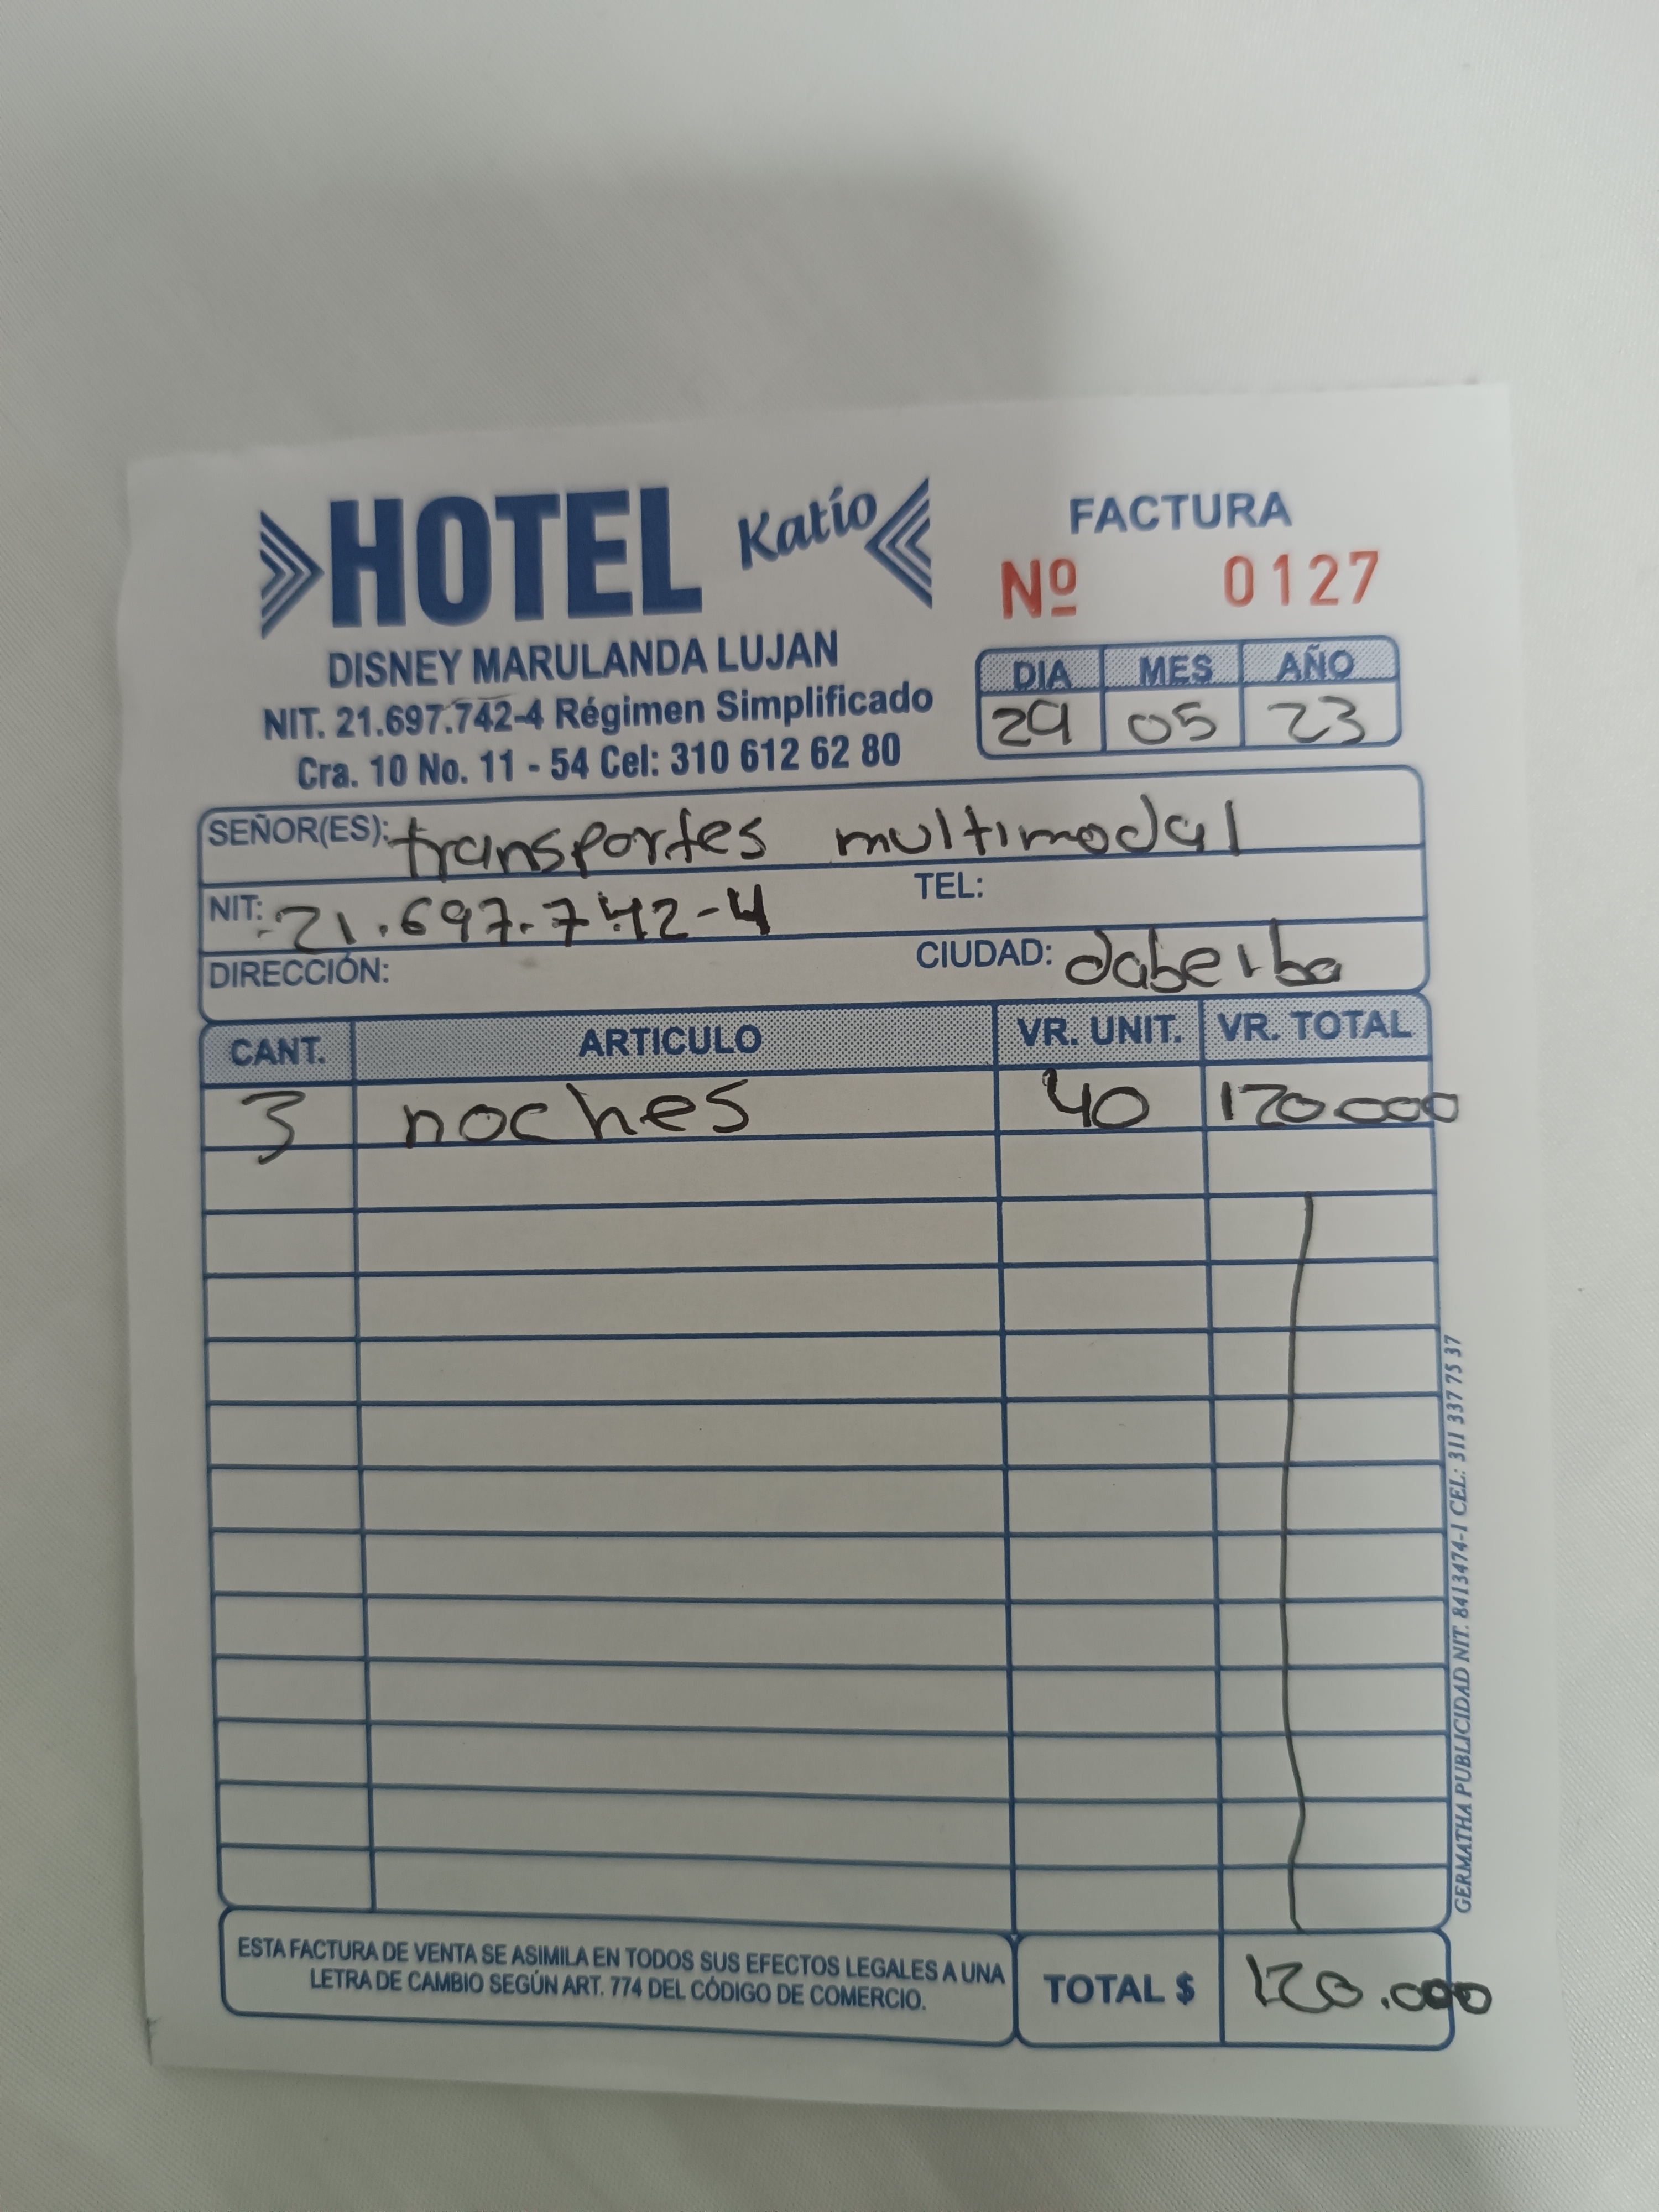 HOTEL Katío
FACTURA
Nº 0127
DISNEY MARULANDA LUJAN
NIT. 21.697.742-4 Régimen Simplificado
Cra. 10 No. 11 - 54 Cel: 310 612 62 80
DIA MES AÑO
29 05 23
SEÑOR(ES): transportes multimodal
NIT: 21.697.742-4 TEL:
DIRECCIÓN: CIUDAD: dabeiba
CANT. ARTICULO VR. UNIT. VR. TOTAL
3 noches 40 120000
GERMATHA PUBLICIDAD NIT. 8413474-1 CEL: 311 337 75 37
ESTA FACTURA DE VENTA SE ASIMILA EN TODOS SUS EFECTOS LEGALES A UNA
LETRA DE CAMBIO SEGÚN ART. 774 DEL CÓDIGO DE COMERCIO.
TOTAL $ 120.000